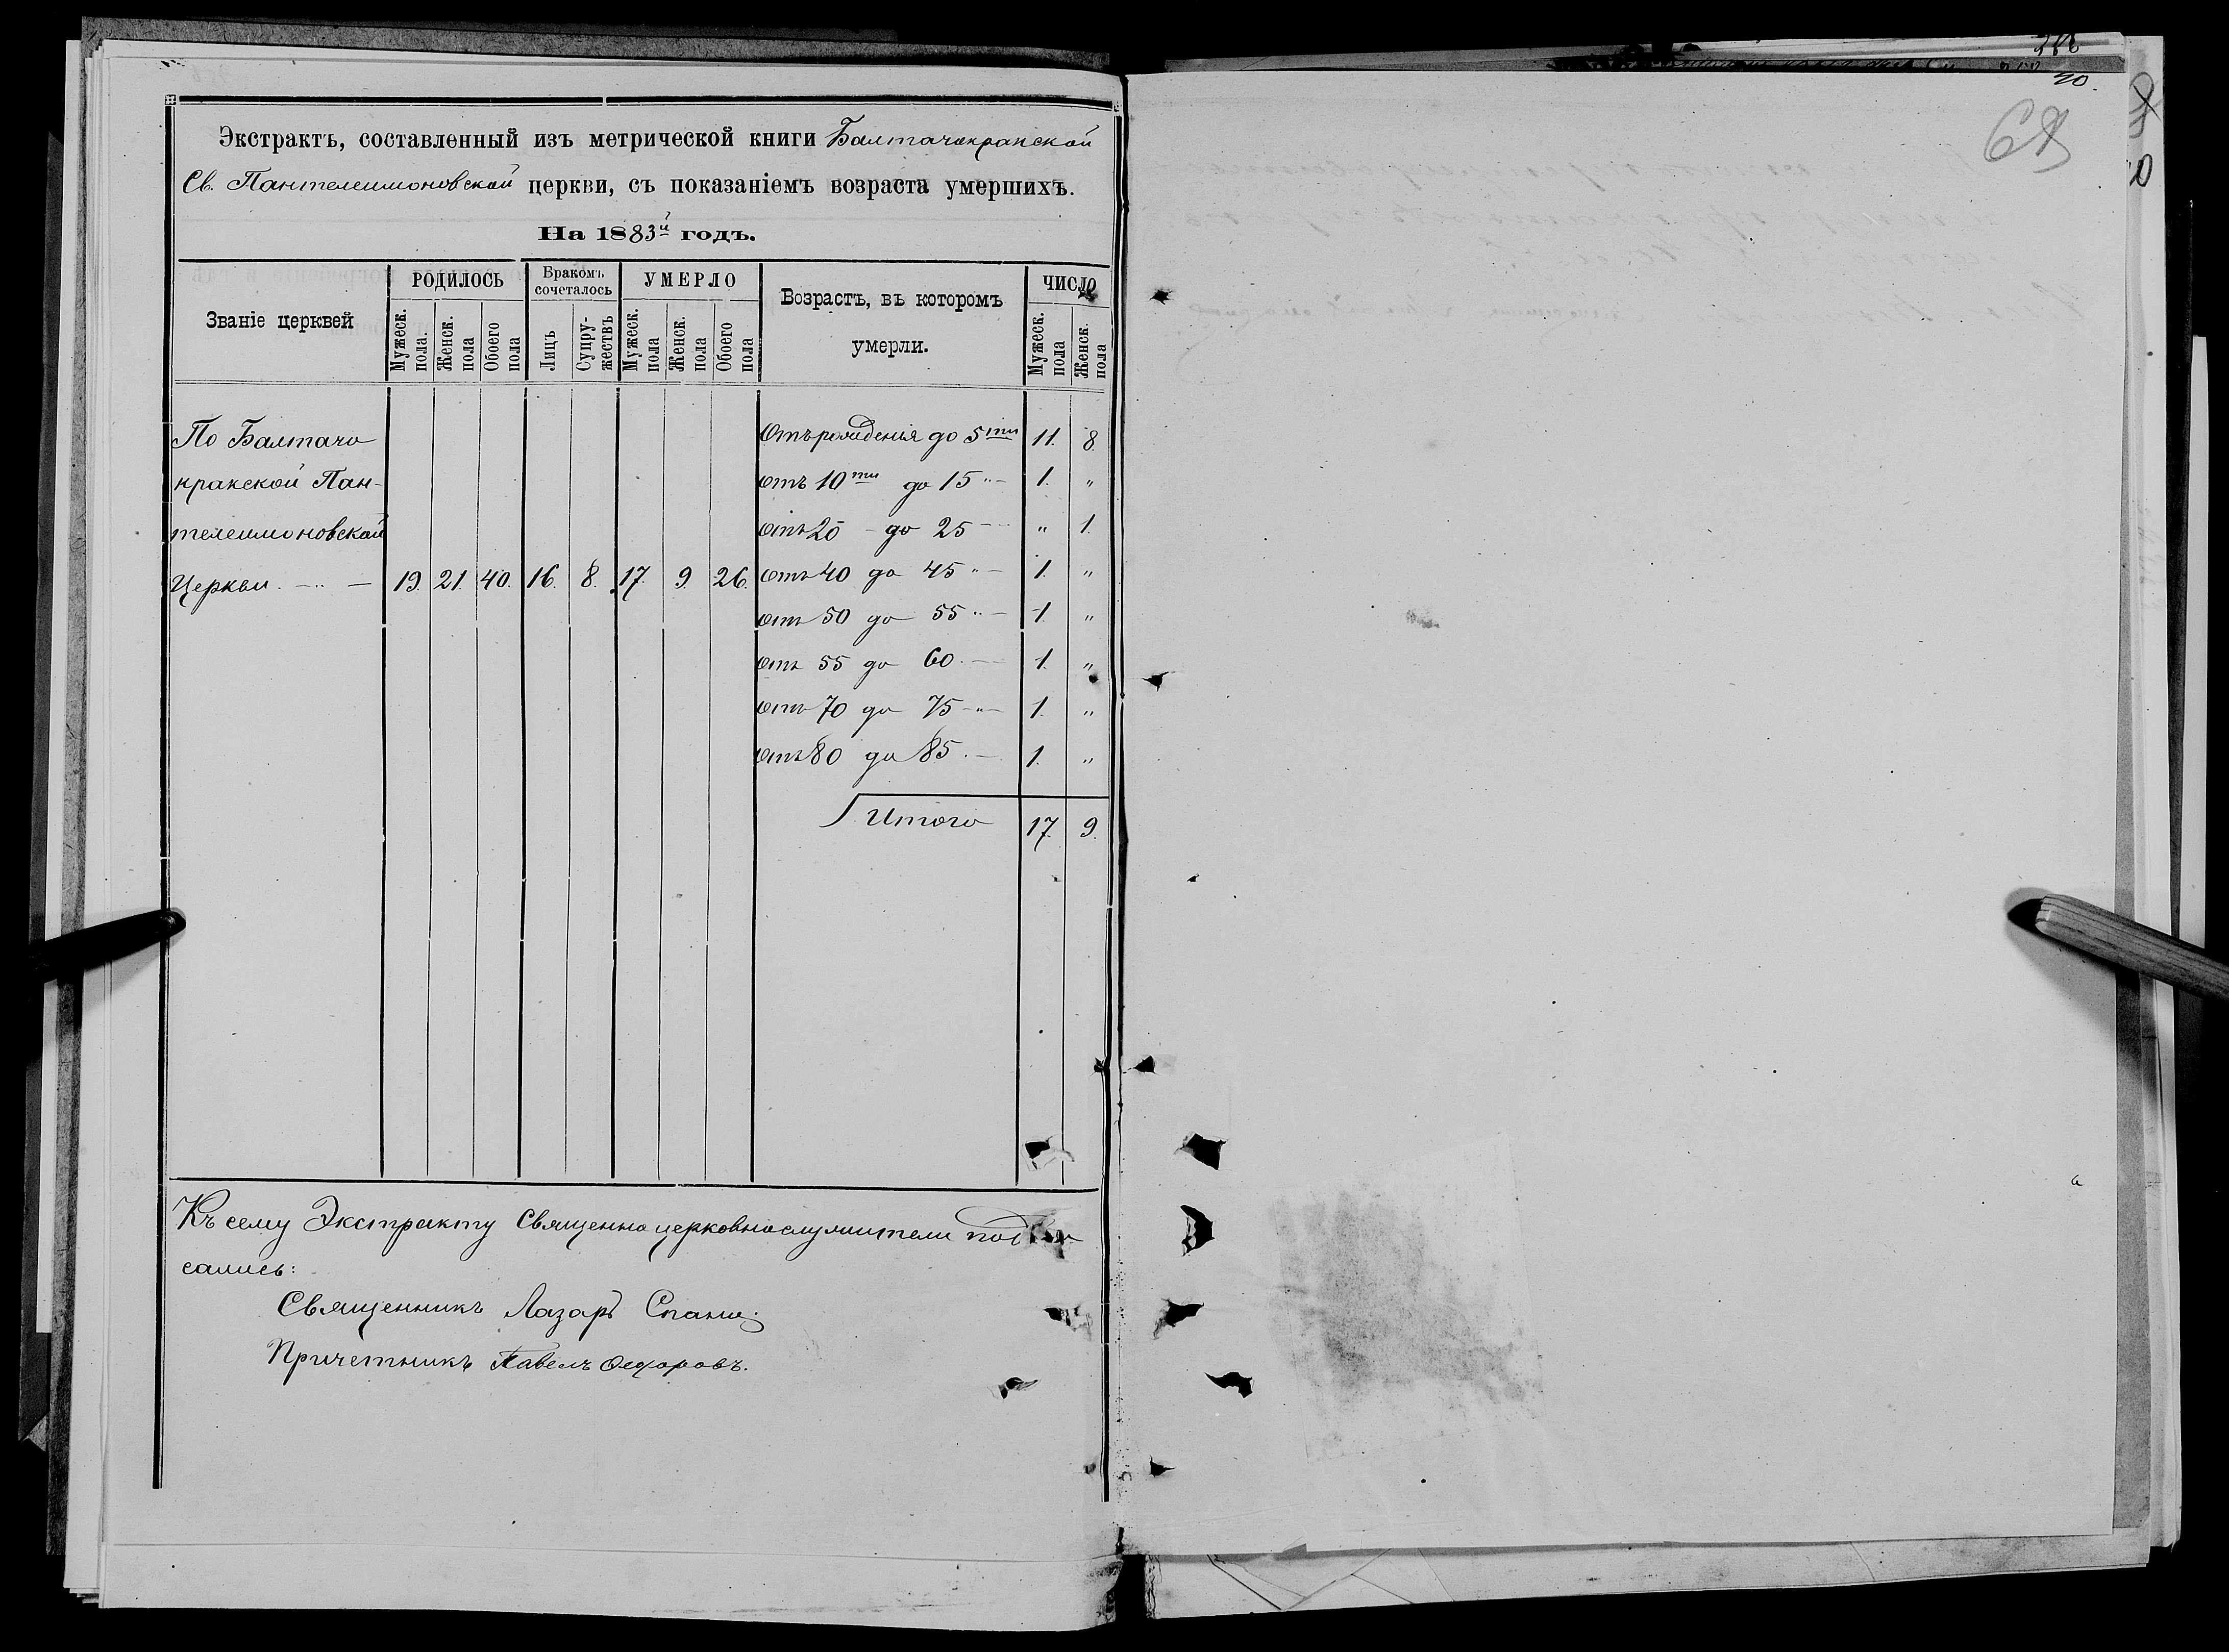 Экстрактъ, составленный изъ метрической книги Балтачокракской
Св. Пантелеимоновской церкви, съ показаніемъ возраста умершихъ.
На 1883й годъ.
Званіе церквей
РОДИЛОСЬ
Мужеск. пола.
Женск. пола
Обоего пола
Бракомъ сочеталось
Лицъ
Супру-жествъ
УМЕРЛО
Мужеск. пола
Женск. пола
Обоего пола
Возрастъ, въ которомъ умерли.
ЧИСЛО
Мужеск. пола
Женск. пола
По Балтачо
кракской Пан-
телеимоновской
Церкви. — " — 19. 21. 40. 16. 8. 17. 9. 26.
Отъ рожденія до 5ти 11. 8.
отъ 10ти до 15 " — 1. "
отъ 20 – до 25 — " 1.
отъ 40 до 45 " — 1. "
отъ 50 до 55 " — 1. "
отъ 55 до 60. — 1. "
отъ 70 до 75 – " – 1. "
отъ 80 до 85. — 1. "
Итого 17. 9.
Къ сему Экстракту Священно церковнослужители
сались:
Священникъ Лазарь
Причетникъ Павелъ Ѳедоровъ.
30.